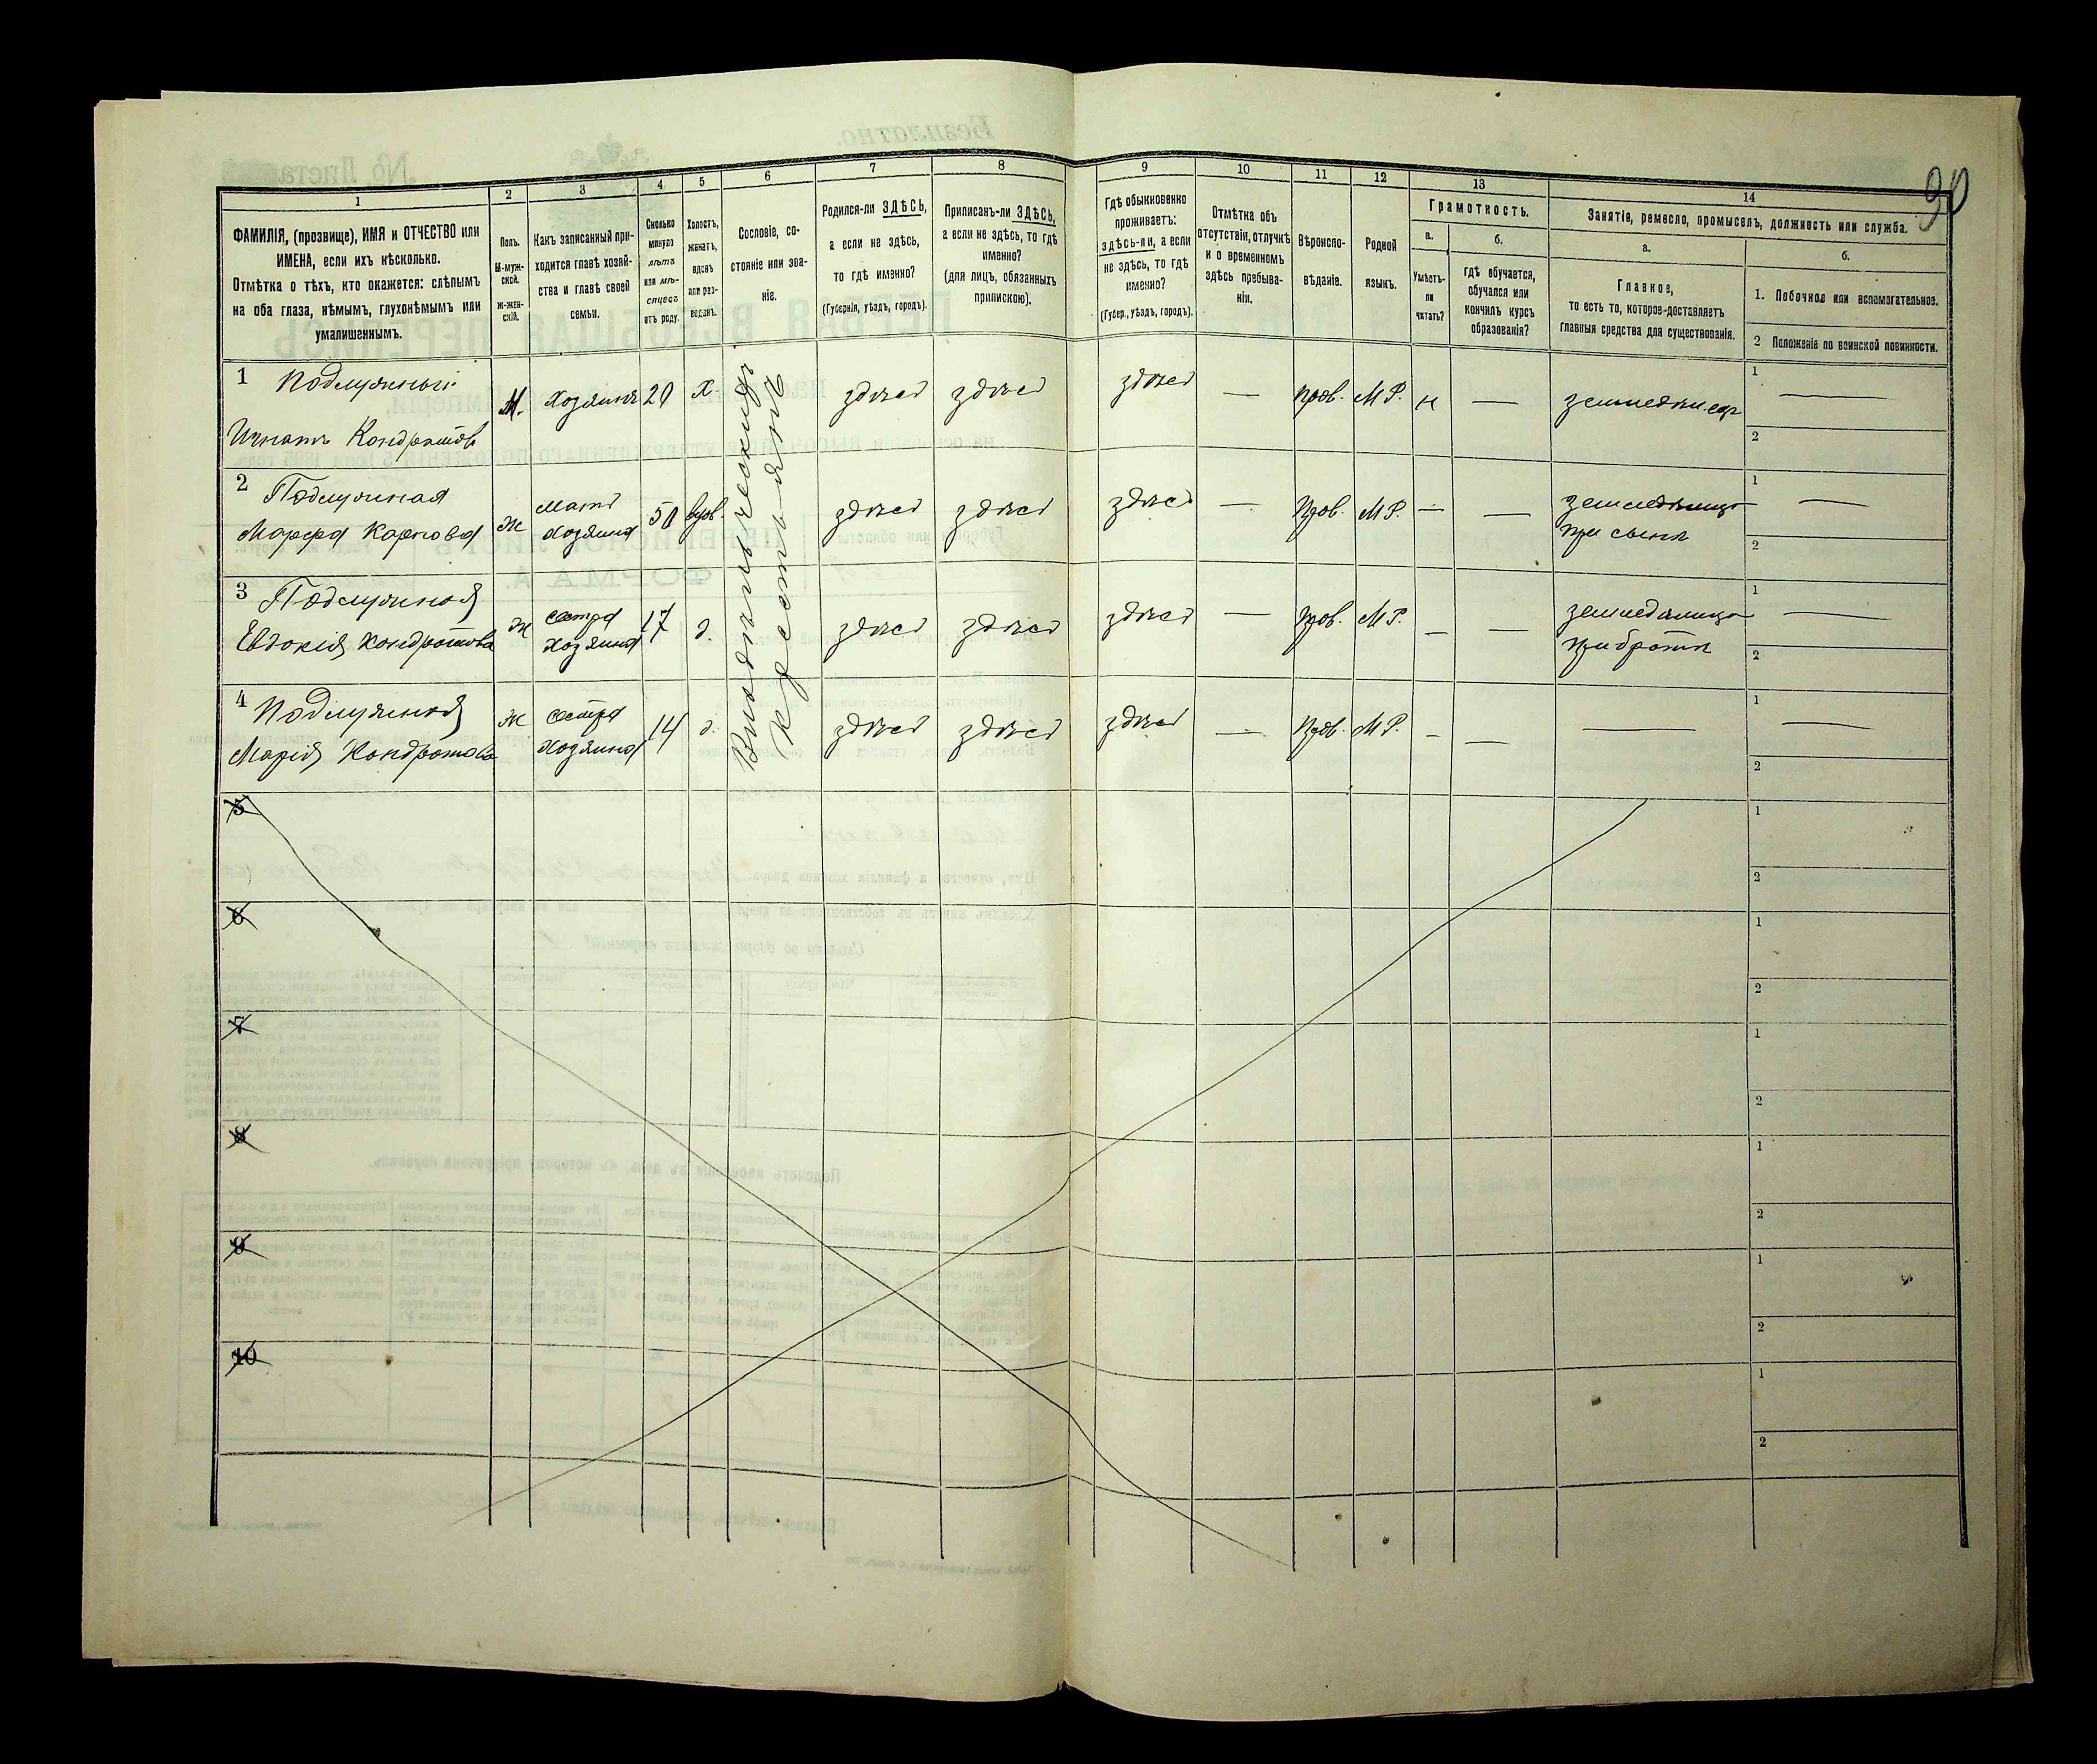 90
1
2
3
4
5
6
7
8
9
10
11
12
13
14
ФАМИЛІЯ, (прозвище), ИМЯ и ОТЧЕСТВО или
ИМЕНА, если ихъ нѣсколько.
Отмѣтка о тѣхъ, кто окажется: слѣпымъ
на оба глаза, нѣмымъ, глухонѣмымъ или
умалишеннымъ.
Полъ.
М-муж-
ской.
Ж-жен-
скій.
Какъ записанный при-
ходится главѣ хозяй-
ства и главѣ своей
семьи.
Сколько
минуло
лѣтъ
или мѣ-
сяцевъ
отъ роду.
Холостъ,
женатъ,
вдовъ
или раз-
веденъ.
Сословіе, со-
стояніе или зва-
ніе.
Родился-ли ЗДѢСЬ,
а если не здѣсь,
то гдѣ именно?
(Губернія, уѣздъ, городъ).
Приписанъ-ли ЗДѢСЬ,
а если не здѣсь, то гдѣ
именно?
(для лицъ, обязанныхъ
припискою).
Гдѣ обыкновенно
проживаетъ:
здѣсь-ли, а если
не здѣсь, то гдѣ
именно?
(Губер., уѣздъ, городъ).
Отмѣтка объ
отсутствіи, отлучкѣ
и о временномъ
здѣсь пребыва-
ніи.
Вѣроиспо-
вѣданіе.
Родной
языкъ.
Грамотность.
а.
Умѣетъ-
ли
читать?
б.
гдѣ обучается,
обучался или
кончилъ курсъ
образованія?
Занятіе, ремесло, промыселъ, должность или служба.
а.
Главное,
то есть то, которое доставляетъ
главныя средства для существованія.
б.
1. Побочное или вспомогательное.
2 Положеніе по воинской повинности.
1 Подлужный
Игнатъ Кондратовъ
М. Хозяинъ 20 Х. здѣсь здѣсь здѣсь — прав. М Р. н — —
1
2
2 Подлужная
Марфа Карпова
ж мать
хозяина
50 вдов. здѣсь здѣсь здѣсь — прав. М Р. — —
при сынѣ
1 —
2
3 Подлужная
Евдокія Кондратова
ж сестра
хозяина
17 д. здѣсь здѣсь здѣсь — прав. М Р. — —
при братѣ
1 —
2
4 Подлужная
Марія Кондратова
ж сестра
хозяина
14 д. здѣсь здѣсь здѣсь — прав. М Р. — — —
1 —
2
Крестьянѣ
5
1
2
6
1
2
7
1
2
8
1
2
9
1
2
10
1
2